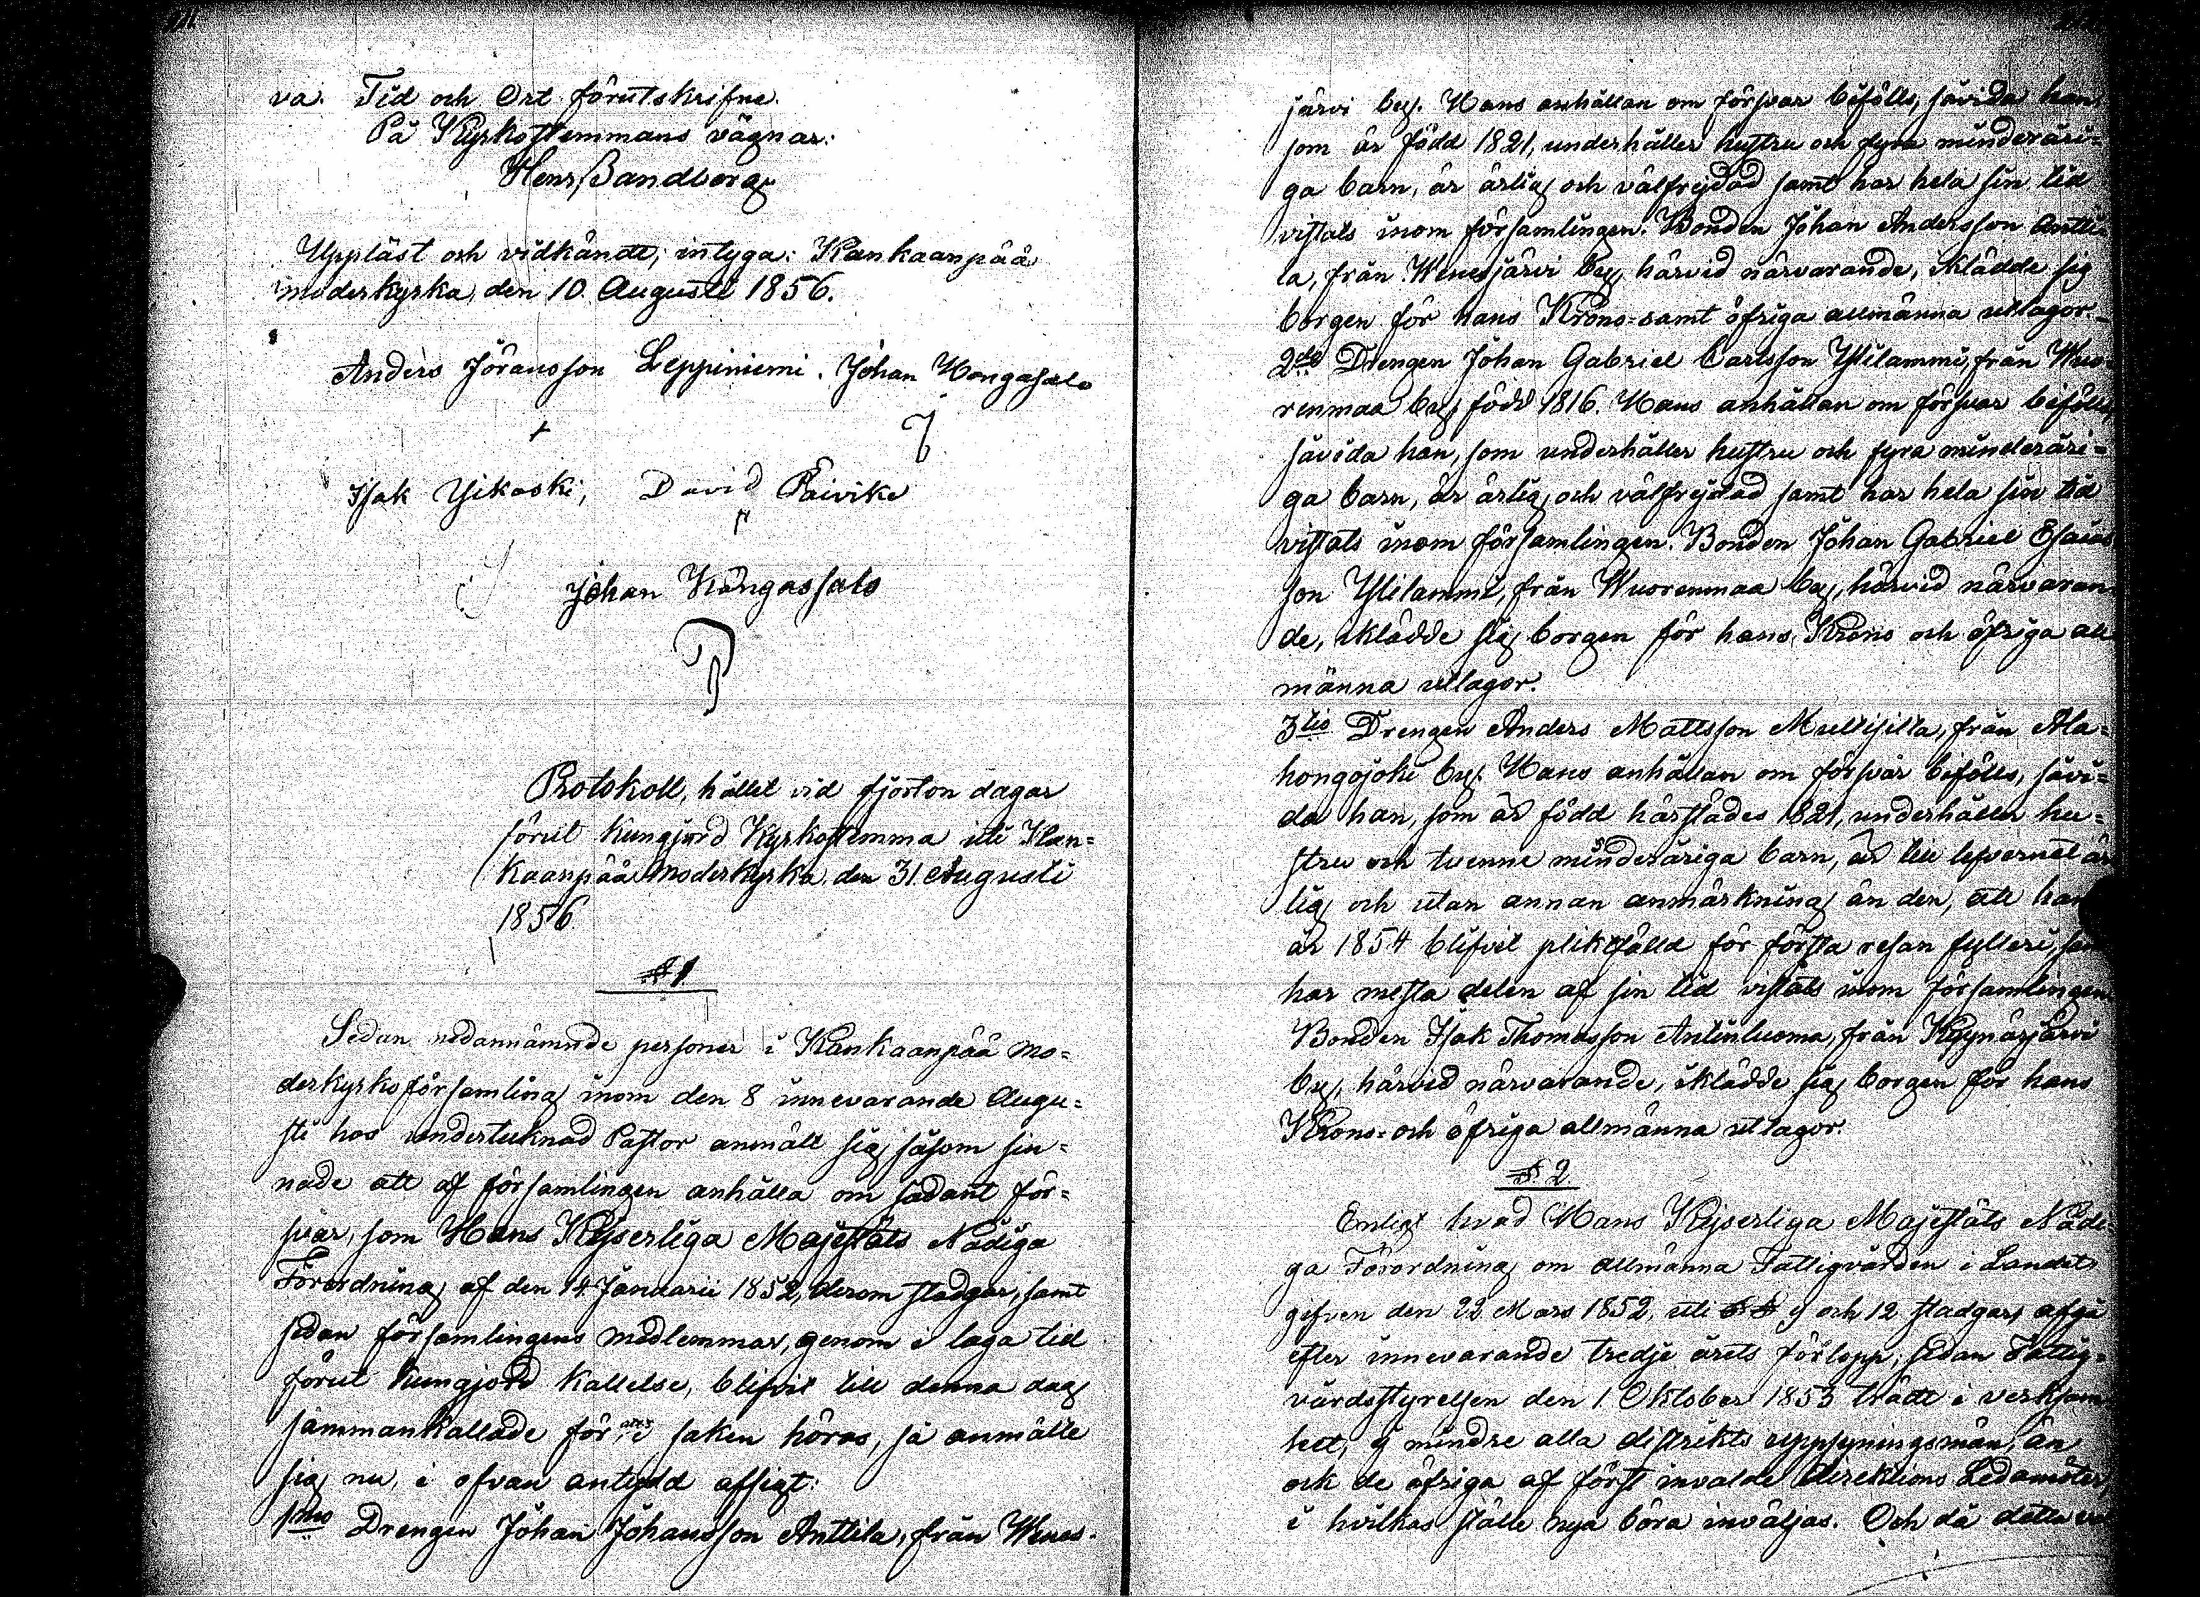 va. Tid och Ort förutskrifne.
På Kyrkostemmans vägnar:
Henr. Sandberg
Uppläst och vidkändt, intyga: Kankaanpää
moderkyrka, den 10 Augusti 1856.
Anders Jöransson Leppiniemi. Johan Hongasalo
Isak Yikoski, David Päivike
Johan Kångassalo
Protokoll, hållet vid fjorton dagar
förut kungjord Kyrkostemma uti Kan-
kaanpää Moderkyrka den 31 Augusti
1856
§ 1
Sedan nedannämnde personer i Kankaanpää mo-
derkyrkoförsamling inom den 8 innevarande Augu-
sti hos undertecknad Pastor anmält sig såsom sin-
nade att af församlingen anhålla om sådant för-
svar, som Hans Kejserliga Majestäts Nådiga
Förordning af den 14 Januarii 1852, derom stadgar, samt
sedan församlingens medlemmar, genom i laga tid
förut kungjord kallelse, blifvit till denna dag
sammankallade för att i saken höras, så anmälte
sig nu, i ofvan antydd afsigt:
1mo Drengen Johan Johansson Anttila, från Wenes-
järvi by. Hans anhållan om försvar bifölls, såvida han
som är född 1821, underhåller hustru och fyra minderåri-
ga barn, är ärlig och välfrejdad samt har hela sin tid
vistats inom församlingen. Bonden Johan Andersson Antti-
la, från Wenesjärvi by, härvid närvarande, iklädde sig
borgen för hans Krono- samt öfriga allmänna utlagor.
2do Drengen Johan Gabriel Carlsson Ylilammi, från Wuo-
renmaa by, född 1816. Hans anhållan om försvar bifölls,
såvida han, som underhåller hustru och fyra minderåri-
ga barn, är ärlig och välfrejdad samt har hela sin tid
vistats inom församlingen. Bonden Johan Gabriel Esaias
son Ylilammi, från Wuorenmaa by, härvid närvaran-
de, iklädde sig borgen för hans Krono och öfriga all
männa utlagor.
3tio Drengen Anders Mattsson Multisilta, från Ala-
hongojoki by. Hans anhållan om försvar bifölls, såvi-
da han, som är född härstädes 1821, underhåller hu-
stru och tvenne minderåriga barn, är till lefvernet är
lig och utan annan anmärkning än den, att han
år 1854 blifvit pliktfälld för första resan fylleri, samt
har mesta delen af sin tid vistats inom församlingen.
Bonden Isak Thomasson Antinluoma, från Kyynärjärvi
by, härvid närvarande, iklädde sig borgen för hans
Krono- och öfriga allmänna utlagor.
§ 2.
Enligt hvad Hans Kejserliga Majestäts Nådi-
ga Förordning om allmänna Fattigvården i Landet
gifven den 22 Mars 1852, uti §§ 9 och 12 stadgar, afgå
efter innevarande tredje årets förlopp, sedan Fattig-
vårdsstyrelsen den 1 Oktober 1853 trädt i verksam
het, ej mindre alla distrikts uppsyningsmän, än
ock de öfriga af först invalde Direktions Ledamöter,
i hvilkas ställe nya böra inväljas. Och då detta